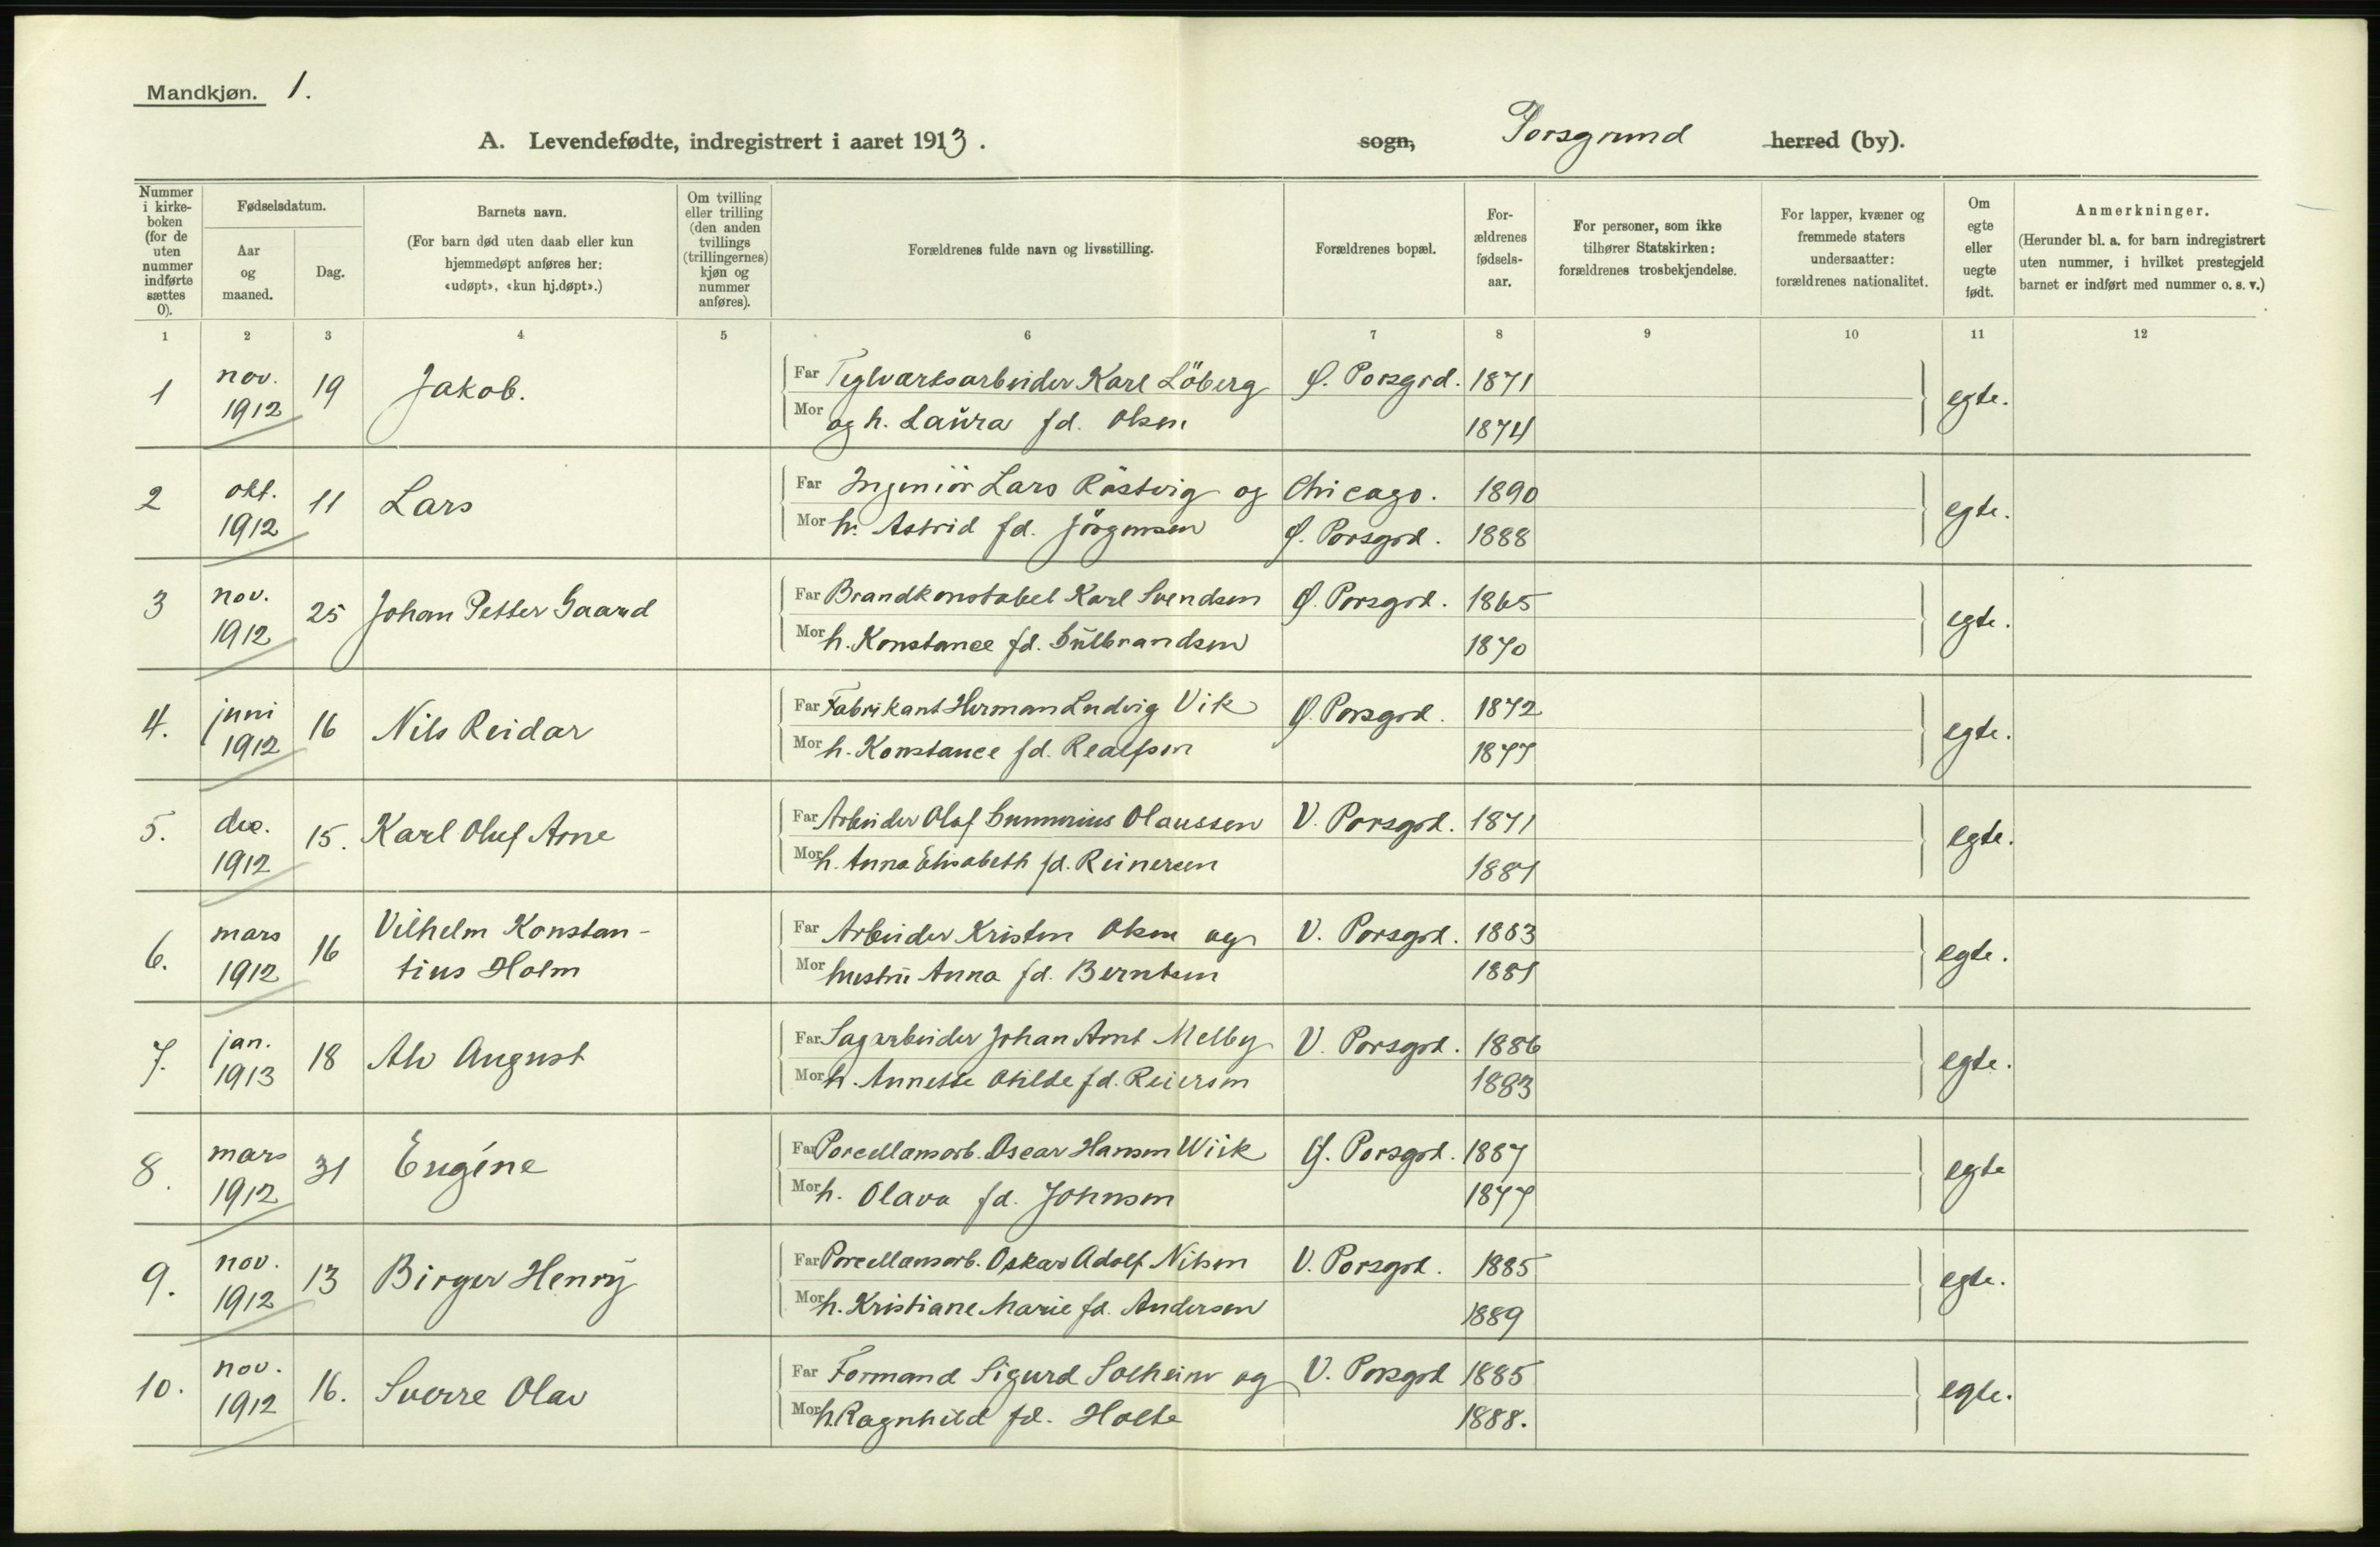 Mandkjøn. 1.
A. Levendefødte, indregistrert i aaret 1913. sogn, Porsgrund herred (by).
Nummer i kirke-boken (for de uten nummer indførte sættes 0).
Fødselsdatum.
Aar og maaned.
Dag.
Barnets navn.
(For barn død uten daab eller kun hjemmedøpt anføres her: «udøpt», «kun hj.døpt».)
Om tvilling eller trilling (den anden tvillings (trillingernes) kjøn og nummer anføres).
Forældrenes fulde navn og livsstilling.
Forældrenes bopæl.
For-ældrenes fødsels-aar.
For personer, som ikke tilhører Statskirken: forældrenes trosbekjendelse.
For lapper, kvæner og fremmede staters undersaatter: forældrenes nationalitet.
Om egte eller uegte født.
Anmerkninger.
(Herunder bl. a. for barn indregistrert uten nummer, i hvilket prestegjeld barnet er indført med nummer o. s. v.)
1 2 3 4 5 6 7 8 9 10 11 12
1 nov. 1912 19 Jakob. Far Teglværksarbeider Karl Löberg Ø. Porsgrd. 1871 egte.
Mor og h. Laura fd. Olsen 1874
2 okt. 1912 11 Lars Far Ingeniör Lars Röstvig og Chicago. 1890 egte.
Mor h. Astrid fd. Jörgensen Ø. Porsgrd. 1888
3 nov. 1912 25 Johan Petter Gaard Far Brandkonstabel Karl Svendsen Ø. Porsgrd. 1865 egte.
Mor h. Konstance fd. Gulbrandsen 1870
4. juni 1912 16 Nils Reidar Far Fabrikant Herman Ludvig Vik Ø. Porsgrd. 1872 egte.
Mor h. Konstance fd. Realfsen 1877
5. dec. 1912 15. Karl Oluf Arne Far Arbeider Olaf Gunnerius Olaussen V. Porsgrd. 1871 egte.
Mor h. Anna Elisabeth fd. Reinersen 1881
6. mars 1912 16 Vilhelm Konstan-
tius Holm Far Arbeider Kristen Olsen og V. Porsgrd. 1883 egte.
Mor hustru Anna fd. Berntsen 1881
7. jan. 1913 18 Alv August Far Sagarbeider Johan Arnt Melby V. Porsgrd. 1886 egte.
Mor h. Annette Otilde fd. Reiersen 1883
8. mars 1912 31 Eugéne Far Porcellansarb. Oscar Hansen Wiik Ø. Porsgrd. 1887 egte
Mor h. Olava fd. Johnsen 1877
9. nov. 1912 13 Birger Henry Far Porcellansarb. Oskar Adolf Nilsen V. Porsgrd. 1885 egte.
Mor h. Kristiane Marie fd. Andersen 1889
10. nov. 1912 16. Sverre Olav Far Formand Sigurd Solheim og V. Porsgrd 1885 egte.
Mor h. Ragnhild fd. Holte 1888.